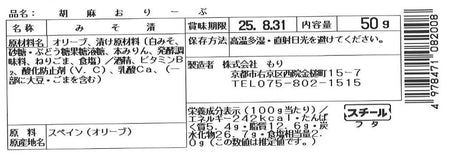 品名 胡麻おりーぶ
名称 みそ漬
原材料名 オリーブ、漬け原材料（白みそ、
砂糖・ぶどう糖果糖液糖、本みりん、発酵調
味料、ねりごま、食塩）／酒精、ビタミンB
2、酸化防止剤（V.C）、乳酸Ca、（一
部に大豆・ごまを含む）
原料原産地名 スペイン（オリーブ）
賞味期限 25.8.31 内容量 50g
保存方法 高温多湿・直射日光を避けてください。
製造者 株式会社 もり
京都市右京区西院金槌町15-7
TEL075-802-1515
栄養成分表示（100g当たり）／
エネルギー242kcal・たんぱ
く質5.4g・脂質12.6g・炭
水化物26.7g・食塩相当量2.
0g（この数値は推定値です。）
スチール
フタ
4978471082008